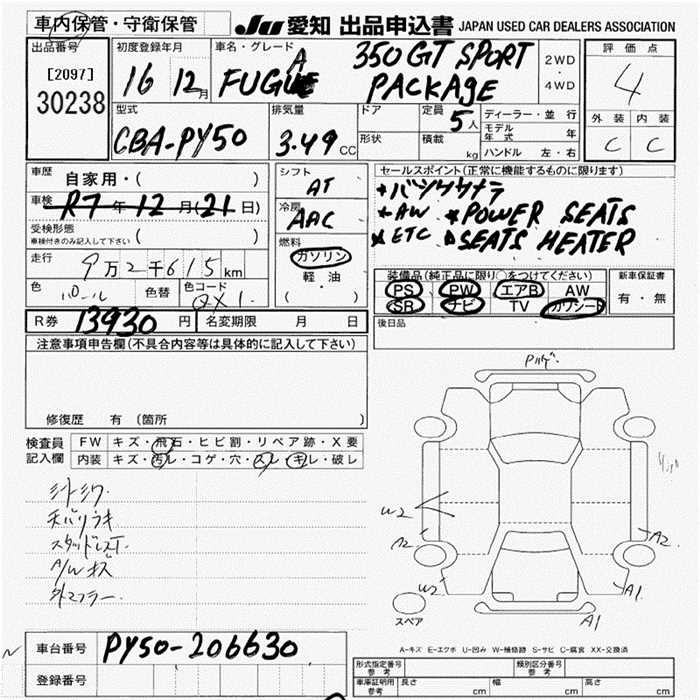 車内保管・守衛保管
JU 愛知 出品申込書 JAPAN USED CAR DEALERS ASSOCIATION
出品番号
[2097]
30238
初度登録年月
16 12月
車名・グレード
FUGA 350GT SPORT
PACKAGE
2WD
・
4WD
評価点
4
外装 内装
C C
型式
CBA-PY50
排気量
3.49 CC
ドア
形状
定員
5人
積載
kg
ディーラー・並行
モデル年式 年
ハンドル 左・右
車歴
自家用・( )
車検
R7年12月(21日)
受検形態
車検付きのみ記入して下さい ( )
走行
9万2千615km
色
パール
色替
色コード
QX1
シフト
AT
冷房
AAC
燃料
ガソリン
軽・油
( )
セールスポイント(正常に機能するものに限ります)
*バックカメラ
*AW *POWER SEATS
*ETC SEATS HEATER
装備品(純正品に限り○をつけてください)
PS PW エアB AW
SR ナビ TV カワシート
新車保証書
有・無
後日品
R券 13930円
名変期限 月 日
注意事項申告欄(不具合内容等は具体的に記入して下さい)
修復歴 有 〔箇所 〕
検査員
記入欄
FW キズ・飛石・ヒビ割・リペア跡・X要
内装 キズ・汚レ・コゲ・穴・スレ・キレ・破レ
シートシワ
天バリウキ
スタッドレス
A/Wキズ
外マフラー
W2
A2
W2
A2
A1
A1
スペア
A-キズ E-エクボ U-凹み W-補修跡 S-サビ C-腐食 XX-交換済
車台番号
PY50-206630
登録番号
型式指定番号
参考
類別区分番号
参考
車庫証明用
参考
長さ cm
幅 cm
高さ cm